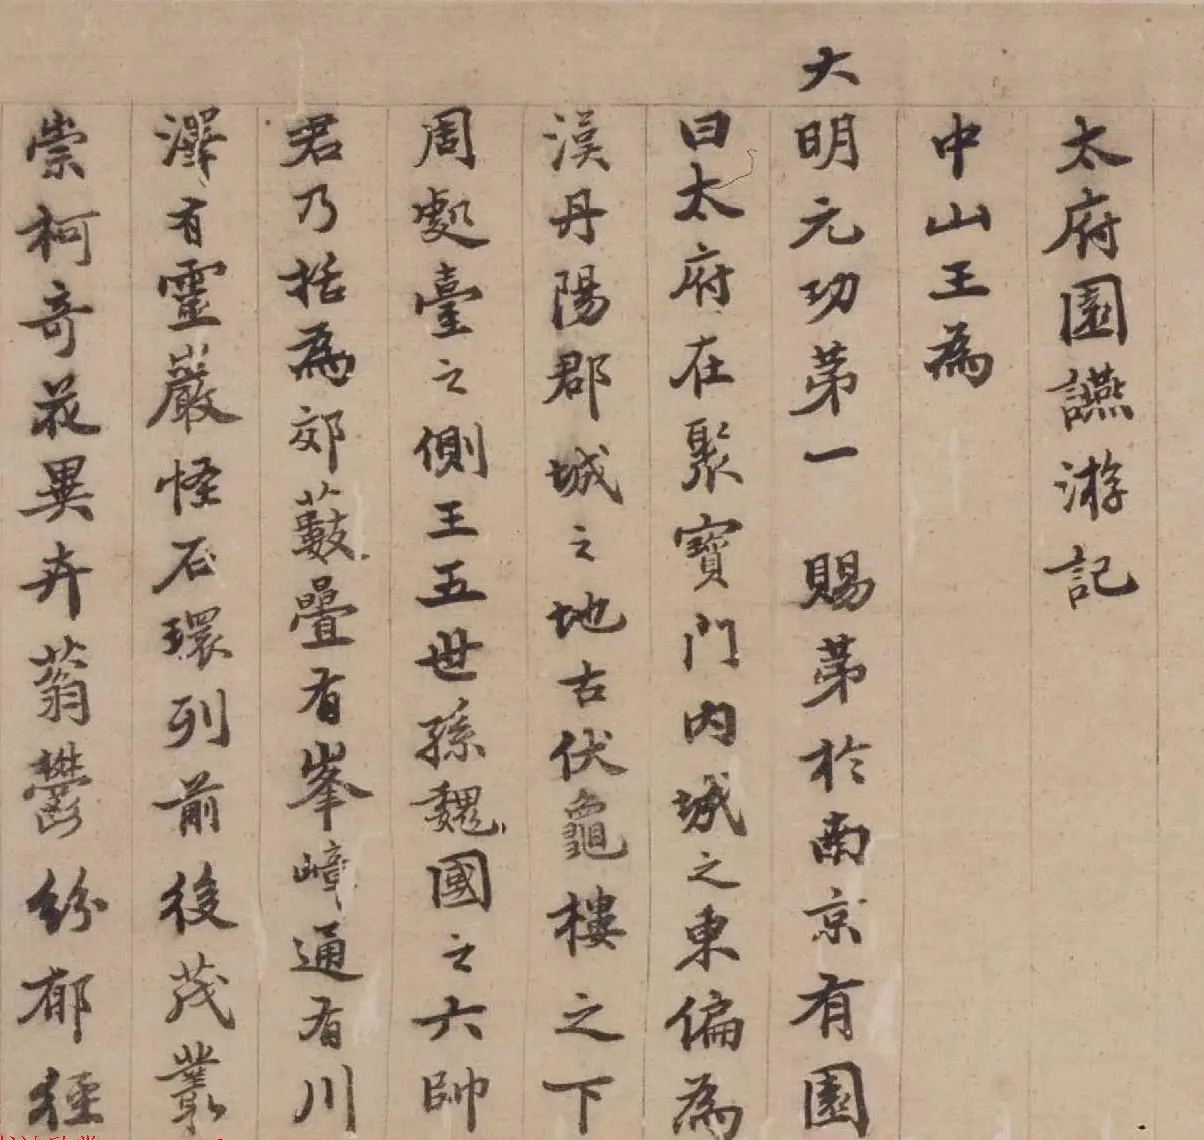 太府園讌游記
中山王為
大明元功第一 賜第於南京有園
曰太府在聚寶門內城之東偏為
漢丹陽郡城之地古伏龜樓之下
周處臺之側王五世孫魏國之六帥
君乃括為郊藪疊有峯嶂通有川
澤有靈巖怪石環列前後茂叢
崇柯奇花異卉蓊鬱紛郁經